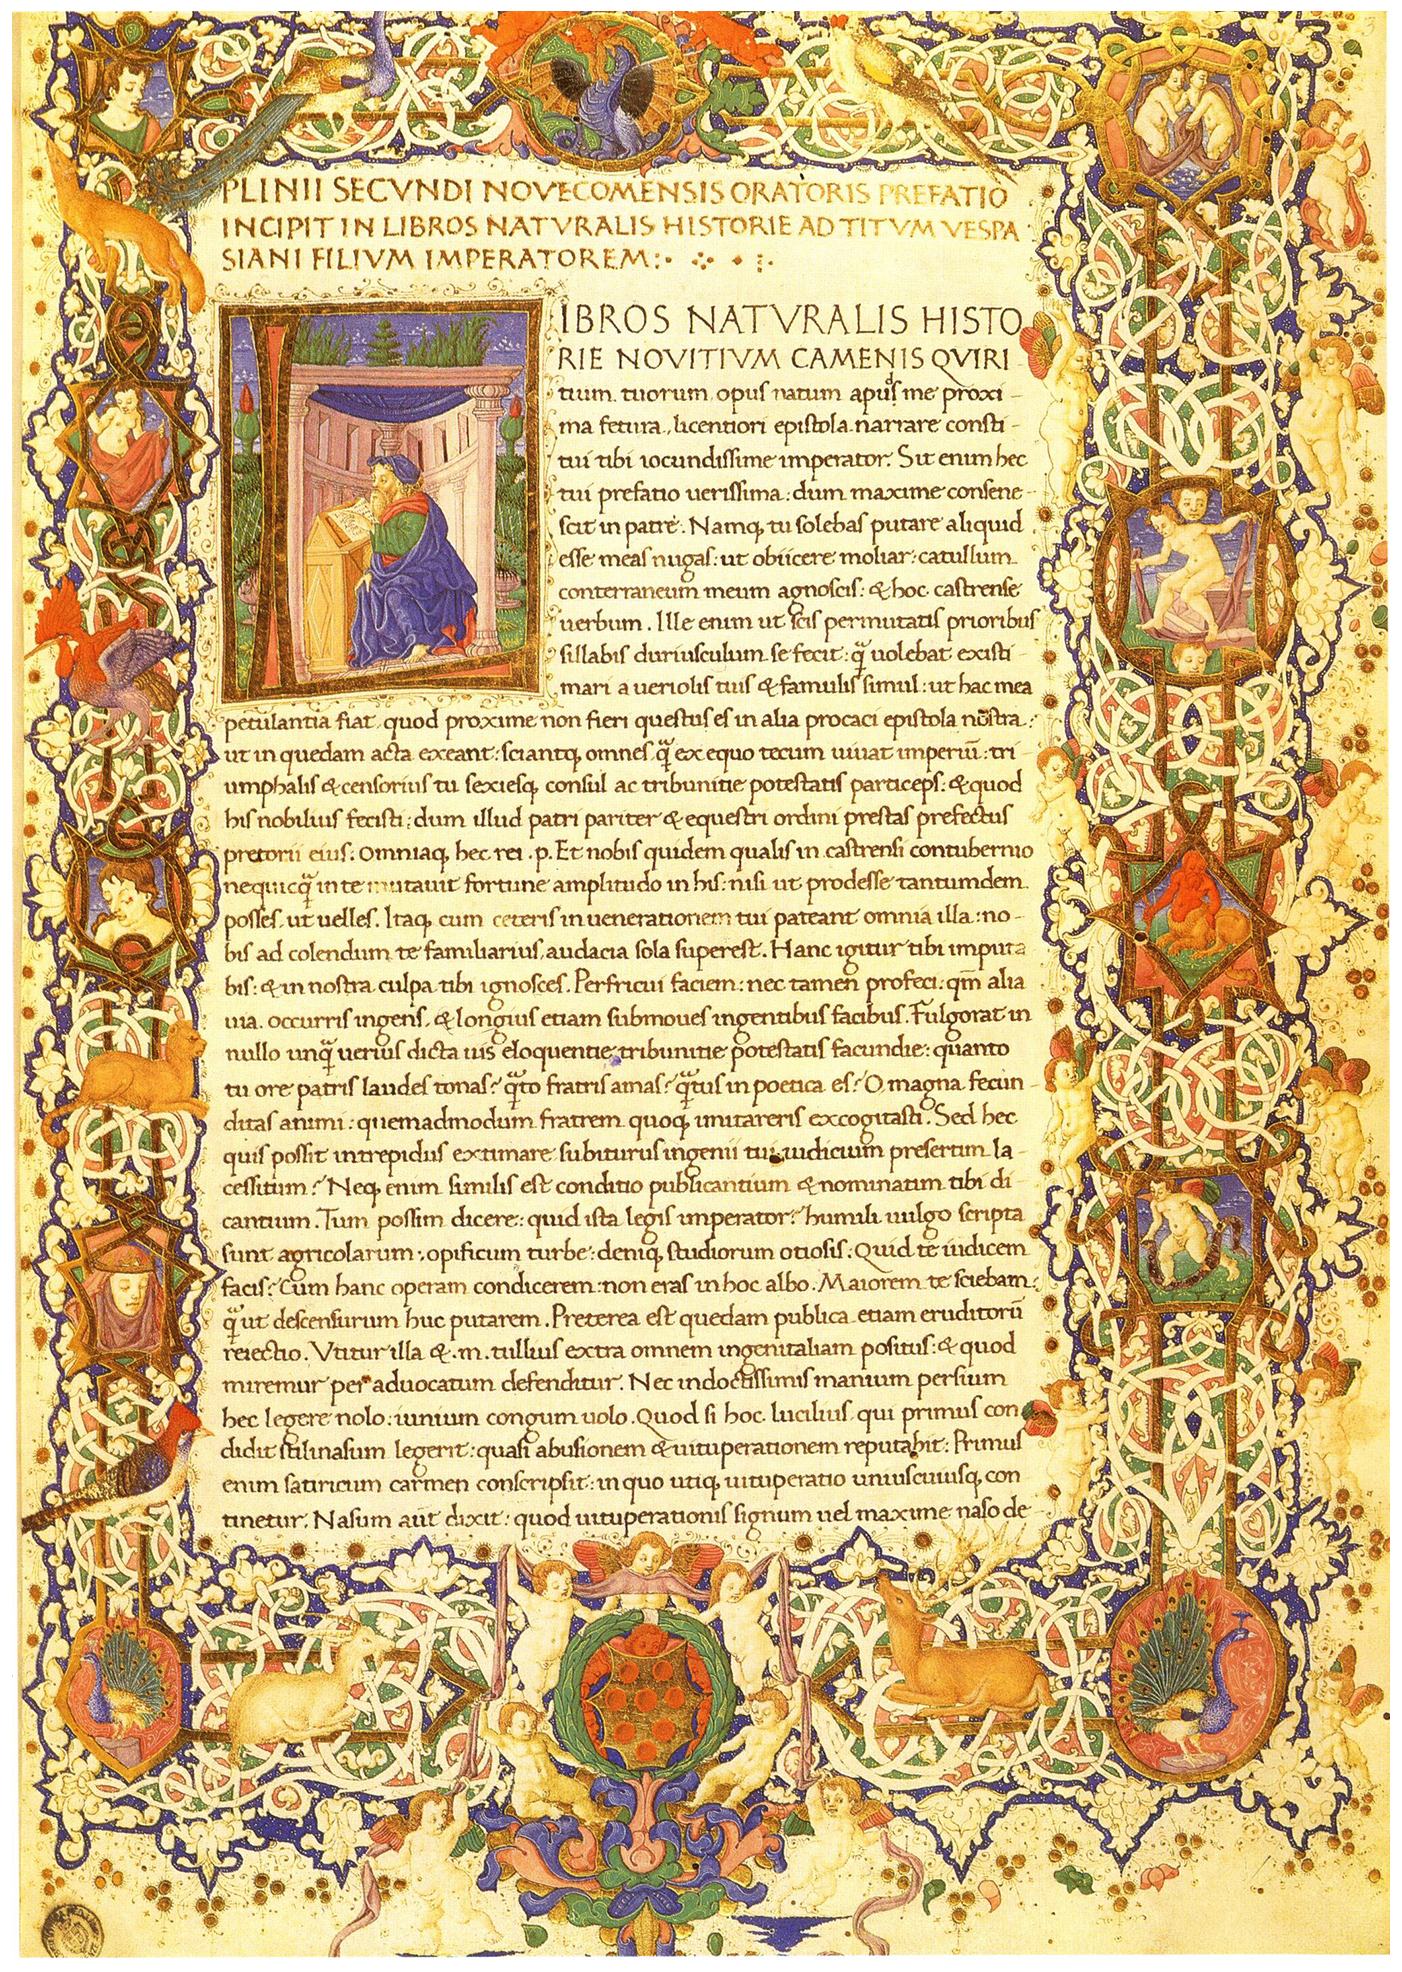 PLINII SECVNDI NOVECOMENSIS ORATORIS PREFATIO
INCIPIT IN LIBROS NATVRALIS HISTORIE AD TITVM VESPA
SIANI FILIVM IMPERATOREM:
IBROS NATVRALIS HISTO
RIE NOVITIVM CAMENIS QVIRI
tium tuorum opus natum apud me proxi-
ma fetura, licentiori epistola narrare consti-
tui tibi iocundissime imperator. Sit enim hec
tui prefatio uerissima: dum maxime consene-
scit in patre. Namq; tu solebas putare aliquid
esse meas nugas: ut obiicere moliar: catullum
conterraneum meum agnoscis: & hoc castrense
uerbum. Ille enim ut scis permutatis prioribus
sillabis duriusculum se fecit: q̃ uolebat existi-
mari a ueriolis tuis & famulis simul: ut hac mea
petulantia fiat quod proxime non fieri questus es in alia procaci epistola nostra:
ut in quedam acta exeant: sciantq; omnes q̃ ex equo tecum uiuat imperiũ: tri
umphalis & censorius tu sexiesq; consul ac tribunitie potestatis particeps: & quod
his nobilius fecisti: dum illud patri pariter & equestri ordini prestas prefectus
pretorii eius: omniaq; hec rei .p. Et nobis quidem qualis in castrensi contubernio
nequicq̃ in te mutauit fortune amplitudo in his: nisi ut prodesse tantumdem
posses ut uelles. Itaq; cum ceteris in uenerationem tui pateant omnia illa: no-
bis ad colendum te familiarius, audacia sola superest. Hanc igitur tibi imputa
bis: & in nostra culpa tibi ignosces. Perfricui faciem: nec tamen profeci: qm̃ alia
uia occurris ingens, & longius etiam submoues ingentibus facibus. Fulgorat in
nullo unq̃ uerius dicta uis eloquentie, tribunitie potestatis facundie: quanto
tu ore patris laudes tonas? q̃to fratris amas? q̃tus in poetica es? O magna fecun
ditas animi: quemadmodum fratrem quoq; imitareris excogitasti. Sed hec
quis possit intrepidus extimare subiturus ingenii tui iudicium presertim la-
cessitum? Neq; enim similis est conditio publicantium & nominatim tibi di-
cantium. Tum possim dicere: quid ista legis imperator? humili uulgo scripta
sunt agricolarum, opificum turbe: deniq; studiorum otiosis: Quid te iudicem
facis? Cum hanc operam condicerem: non eras in hoc albo. Maiorem te sciebam:
q̃ ut descensurum huc putarem. Preterea est quedam publica etiam eruditorũ
reiectio. Vtitur illa & .m. tullius extra omnem ingenitaliam positus: & quod
miremur per aduocatum defenditur. Nec indoctissimis manium persium
hec legere nolo: iunium congum uolo. Quod si hoc lucilius qui primus con
didit stilinasum legerit: quasi abusionem & uituperationem reputabit: Primus
enim satiricum carmen conscripsit: in quo utiq; uituperatio uniuscuiusq; con
tinetur. Nasum aũt dixit: quod uituperationis signum uel maxime naso de-